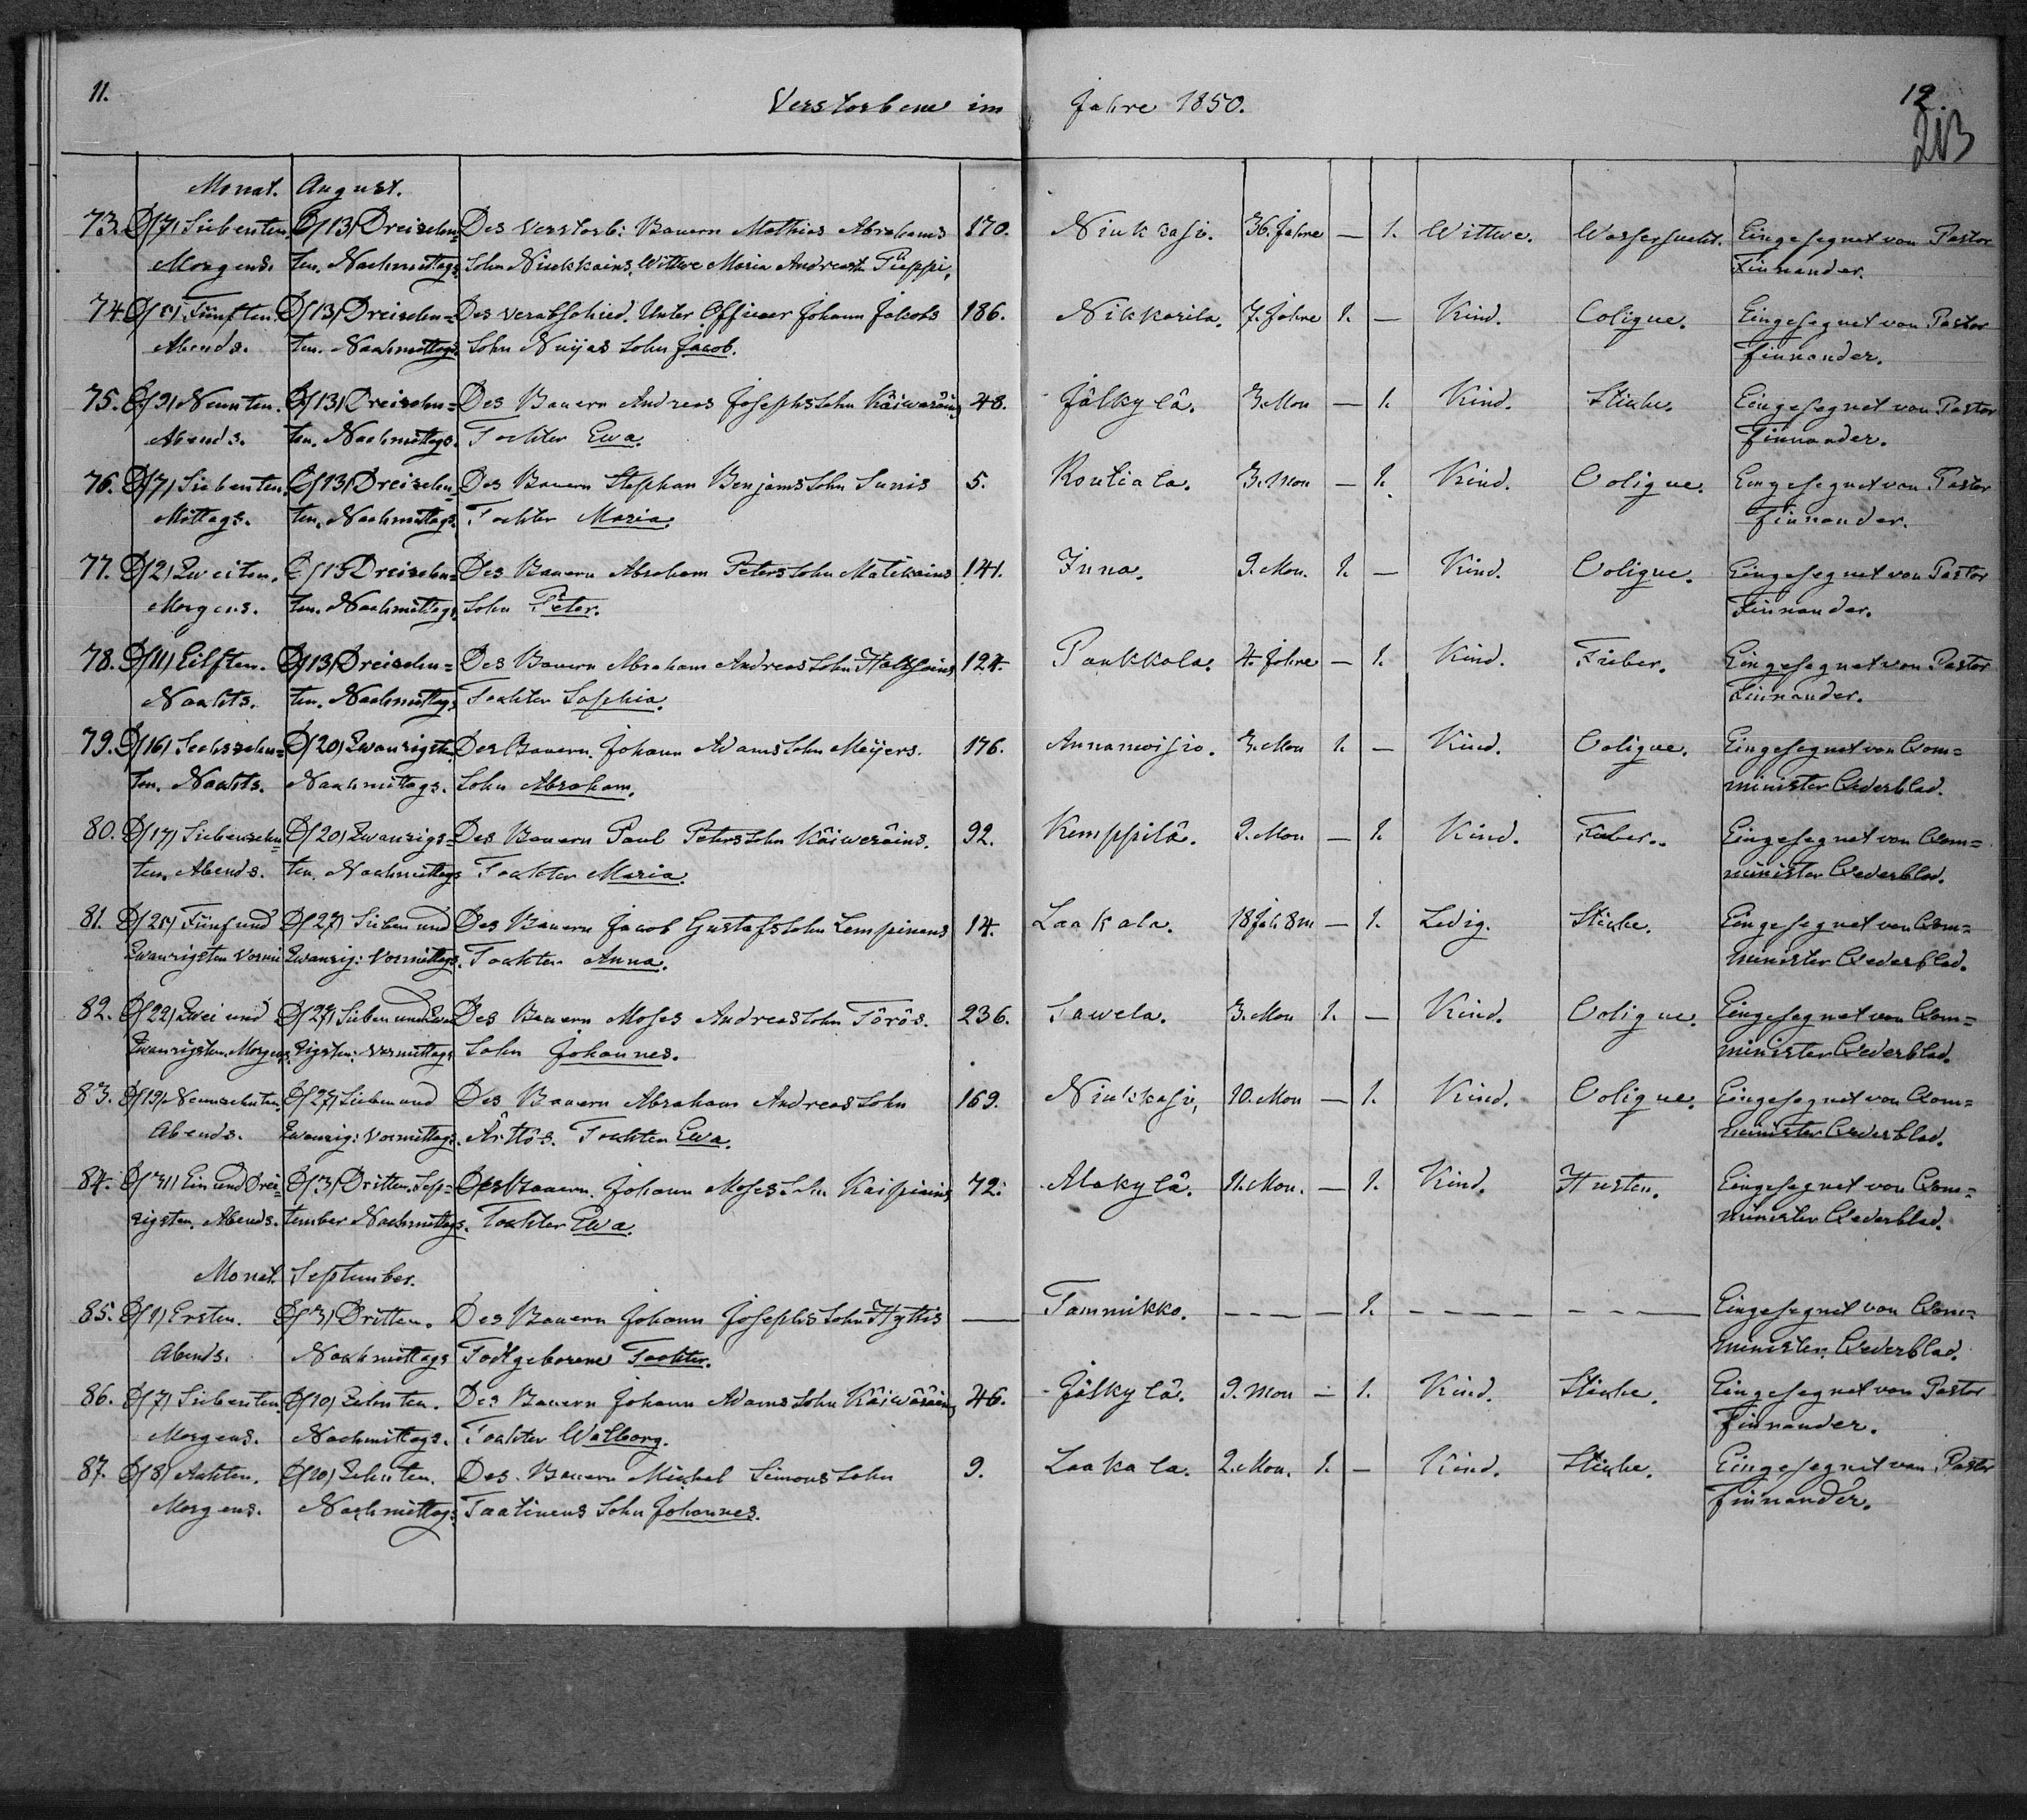 11.
12.
213
Verstorbene im Jahre 1850.
Monat. August.
73. D/7/ Siebenten D/13/ Dreizehn= Des Verstorb: Bauern Mathias Abrahams 170. Niukkasi. 36. Jahre — 1. Wittwe. Wassersucht. Eingesegnet von Pastor
Morgens. ten. Nachmittags. Sohn Niukkains, Wittwe Maria Andreast. Pieppi, Finnander.
74. D/5/ Fünften. D/13/ Dreizehn= Des verabschied. Unter Officier Johann Jakobs 186. Nikkarila. 7. Jahre 1. — Kind. Colique. Eingesegnet von Pastor
Abends. ten. Nachmittags. Sohn Nuijas Sohn Jacob. Finnander.
75. D/9/ Neunten. D/13/ Dreizehn= Des Bauern Andreas Josephs Sohn Käiwäräins 48. Jälkylä. 3. Mon — 1. Kind. Stiche. Eingesegnet von Pastor
Abends. ten. Nachmittags. Tochter Ewa. Finnander.
76. D/7/ Siebenten. D/13/ Dreizehn= Des Bauern Stephan Benjams Sohn Sunis 5. Koutiala. 3. Mon — 1. Kind. Colique. Eingesegnet von Pastor
Mittags. ten. Nachmittags. Tochter Maria. Finnander.
77. D/2/ Zweiten. D/13 Dreizehn= Des Bauern Abraham Peters Sohn Matikains 141. Inna. 9. Mon. 1. — Kind. Colique. Eingesegnet von Pastor
Morgens. ten. Nachmittags. Sohn Peter. Finnander.
78. D/11/ Eilften. D/13/ Dreizehn= Des Bauern Abraham Andreas Sohn 124. Paukkola. 4. Jahre — 1. Kind. Fieber. Eingesegnet von Pastor
Nachts. ten. Nachmittags. Tochter Sophia. Finnander.
79. D/16/ Sechszehn= D/20/ Zwanzigst. Des Bauern Johann Adams Sohn Meijers. 176. Annamoisio. 3. Mon 1. — Kind. Colique. Eingesegnet von Com=
ten. Nachts. Nachmittags. Sohn Abraham. minister Cederblad.
80. D/17/ Siebenzehn= D/20/ Zwanzigs= Des Bauern Paul Peters Sohn Käiweräins. 92. Kemppilä. 9. Mon — 1. Kind. Fieber. Eingesegnet von Com=
ten. Abends. ten. Nachmittags Tochter Maria. minister Cederblad.
81. D/25/ Fünf und D/27/ Sieben und Des Bauern Jacob Gustafs Sohn Lempinens 14. Laakala. 18 Jah 8 m — 1. Ledig. Stiche. Eingesegnet von Com=
Zwanzigsten Vormi Zwanzig: Vormittags. Tochter Anna. minister Cederblad.
82. D/22/ Zwei und D/27/ Sieben und Zwan Des Bauern Moses Andreas Sohn Törös. 236. Sawela. 3. Mon 1. — Kind. Colique. Eingesegnet von Com=
Zwanzigsten. Morgens. zigsten: Vormittags Sohn Johannes. minister Cederblad.
83. D/19/ Neunzehnten. D/27/ Sieben und Des Bauern Abraham Andreas Sohn 169. Niukkasi, 10. Mon — 1. Kind. Colique. Eingesegnet von Com=
Abends. Zwanzig: Vormittags. Ärttös. Tochter Ewa. minister Cederblad.
84. D/31/ Ein und Drei= D/3/ Dritten. Sep= Des Bauern. Johann Moses Sohn Kaipiains 72. Alakylä. 11. Mon. — 1. Kind. Husten. Eingesegnet von Com=
zigsten. Abends. tember Nachmittags. Tochter Ewa. minister Cederblad.
Monat. September.
85. D/1/ Ersten. D/3/ Dritten. Des Bauern Johann Josephs Sohn Hyttis — Tammikko. — — — — 1. — — — — — — — Eingesegnet von Com=
Abends. Nachmittags Todtgeborene Tochter. minister Cederblad.
86. D/7/ Siebenten. D/10/ Zehnten. Des Bauern Johann Adams Sohn Käiwäräins 46. Jälkylä. 9. Mon — 1. Kind. Stiche. Eingesegnet von Pastor
Morgens. Nachmittags. Tochter Walborg. Finnander.
87. D/8/ Achten. D/10/ Zehnten. Des Bauern Michel Simons Sohn 9. Laakala. 2. Mon. 1. — Kind. Stiche. Eingesegnet von Pastor
Morgens. Nachmittags. Taatinens Sohn Johannes. Finnander.